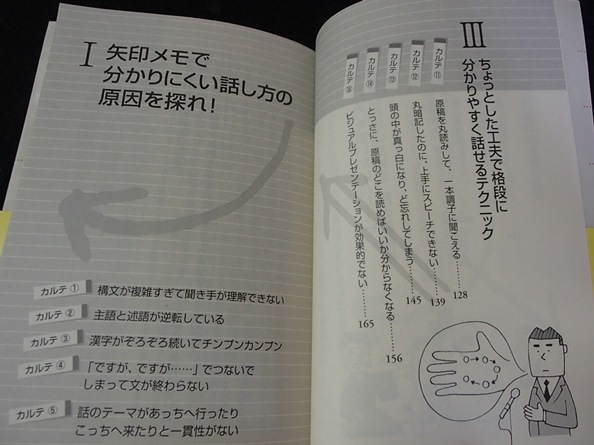 I 矢印メモで
分かりにくい話し方の
原因を探れ!
カルテ ① 構文が複雑すぎて聞き手が理解できない
カルテ ② 主語と述語が逆転している
カルテ ③ 漢字がぞろぞろ続いてチンプンカンプン
カルテ ④ 「ですが、ですが……」でつないで
しまって文が終わらない
カルテ ⑤ 話のテーマがあっちへ行ったり
こっちへ来たりと一貫性がない
III ちょっとした工夫で格段に
分かりやすく話せるテクニック
カルテ ⑪ 原稿を丸読みして、一本調子に聞こえる……128
カルテ ⑫ 丸暗記したのに、上手にスピーチできない……139
カルテ ⑬ 頭の中が真っ白になり、ど忘れしてしまう……145
カルテ ⑭ とっさに、原稿のどこを読めばいいか分からなくなる……156
カルテ ⑮ ビジュアルプレゼンテーションが効果的でない……165